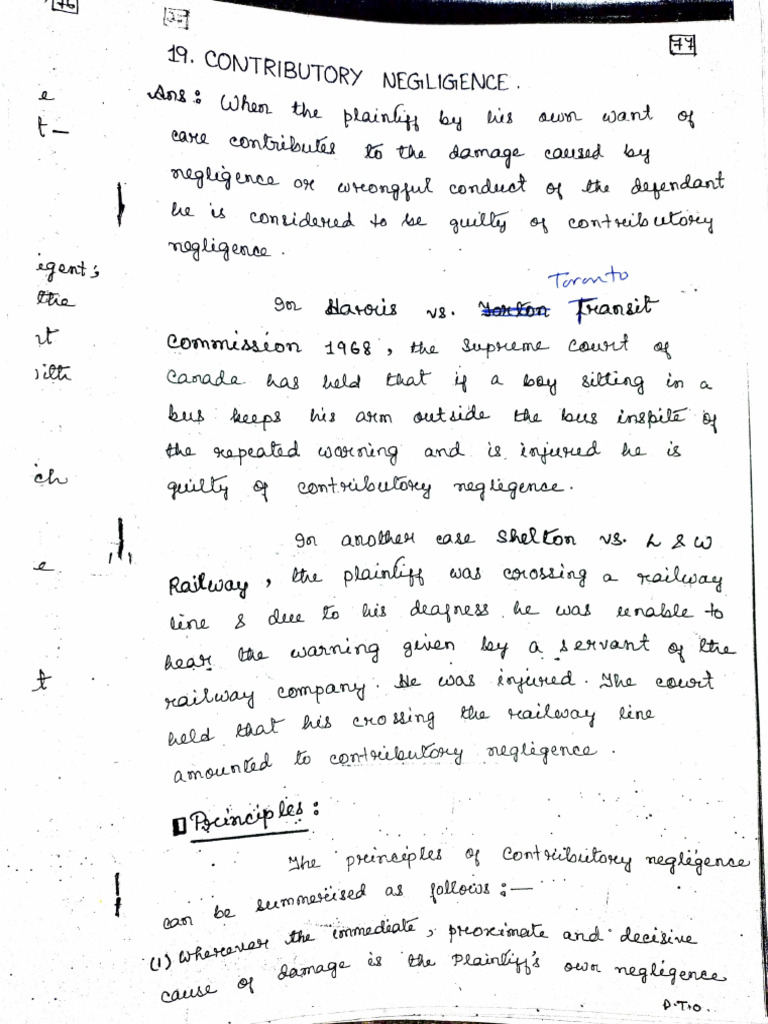 76
77
19. CONTRIBUTORY NEGLIGENCE.
e
Ans: When the plaintiff by his own want of
t —
care contributes to the damage caused by
negligence or wrongful conduct of the defendant
he is considered to be guilty of contributory
negligence.
igent;
the
Toronto
In Harris vs. Yorton Transit
rt
Commission 1968, the Supreme Court of
Canada has held that if a boy sitting in a
bus keeps his arm outside the bus inspite of
the repeated worning and is injured he is
ich
guilty of contributory negligence.
In another case Shelton vs. L & W
e
Railway, the plaintiff was crossing a railway
line & due to his deafness he was unable to
hear the warning given by a servant of the
t
railway company. He was injured. The court
held that his crossing the railway line
amounted to contributory negligence.
Principles:
The principles of contributory negligence
can be summerised as follows:—
(1) Wherever the immediate, proximate and decisive
cause of damage is the Plaintiff's own negligence
P.T.O.